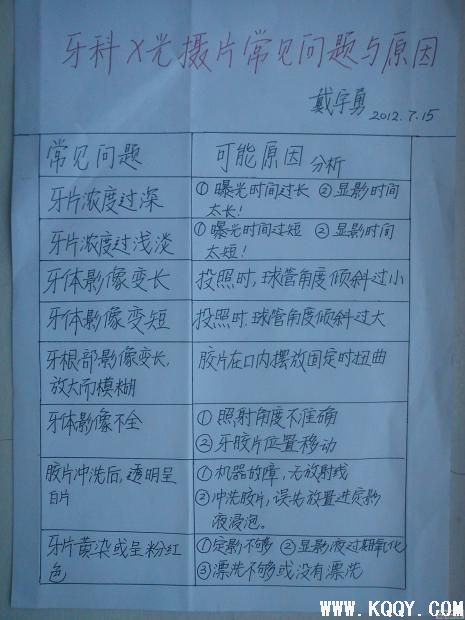 牙科X光摄片常见问题与原因
戴宇勇 2012.7.15
常见问题 可能原因分析
牙片浓度过深 ①曝光时间过长 ②显影时间
太长!
牙片浓度过浅淡 ①曝光时间过短 ②显影时间
太短!
牙体影像变长 投照时,球管角度倾斜过小
牙体影像变短 投照时,球管角度倾斜过大
牙根部影像变长,
放大而模糊
胶片在口内摆放固定时扭曲
牙体影像不全 ①照射角度不准确
②牙胶片位置移动
胶片冲洗后,透明呈
白片
①机器故障,无放射线
②冲洗胶片,误先放置进定影
液浸泡。
牙片黄染或呈粉红
色
①定影不够 ②显影液过期氧化
③漂洗不够或没有漂洗
www.KQQY.COM